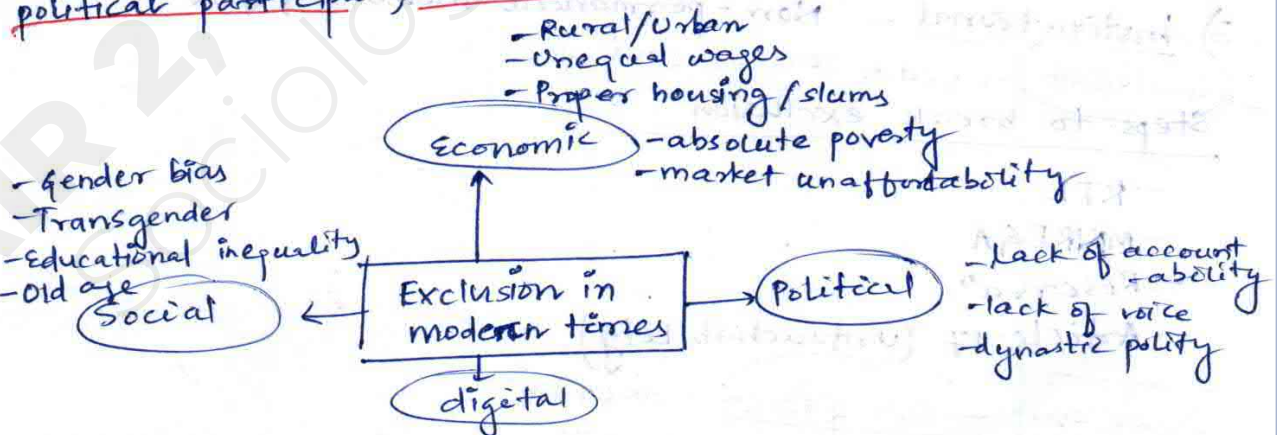 political participa
- Rural/Urban
- Unequal wages
- Proper housing/slums
Economic
- absolute poverty
- market unaffordability
- Gender bias
- Transgender
- Educational inequality
- Old age
Social
Exclusion in
modern times
Political
- Lack of account
-ability
- lack of voice
- dynastic polity
digital